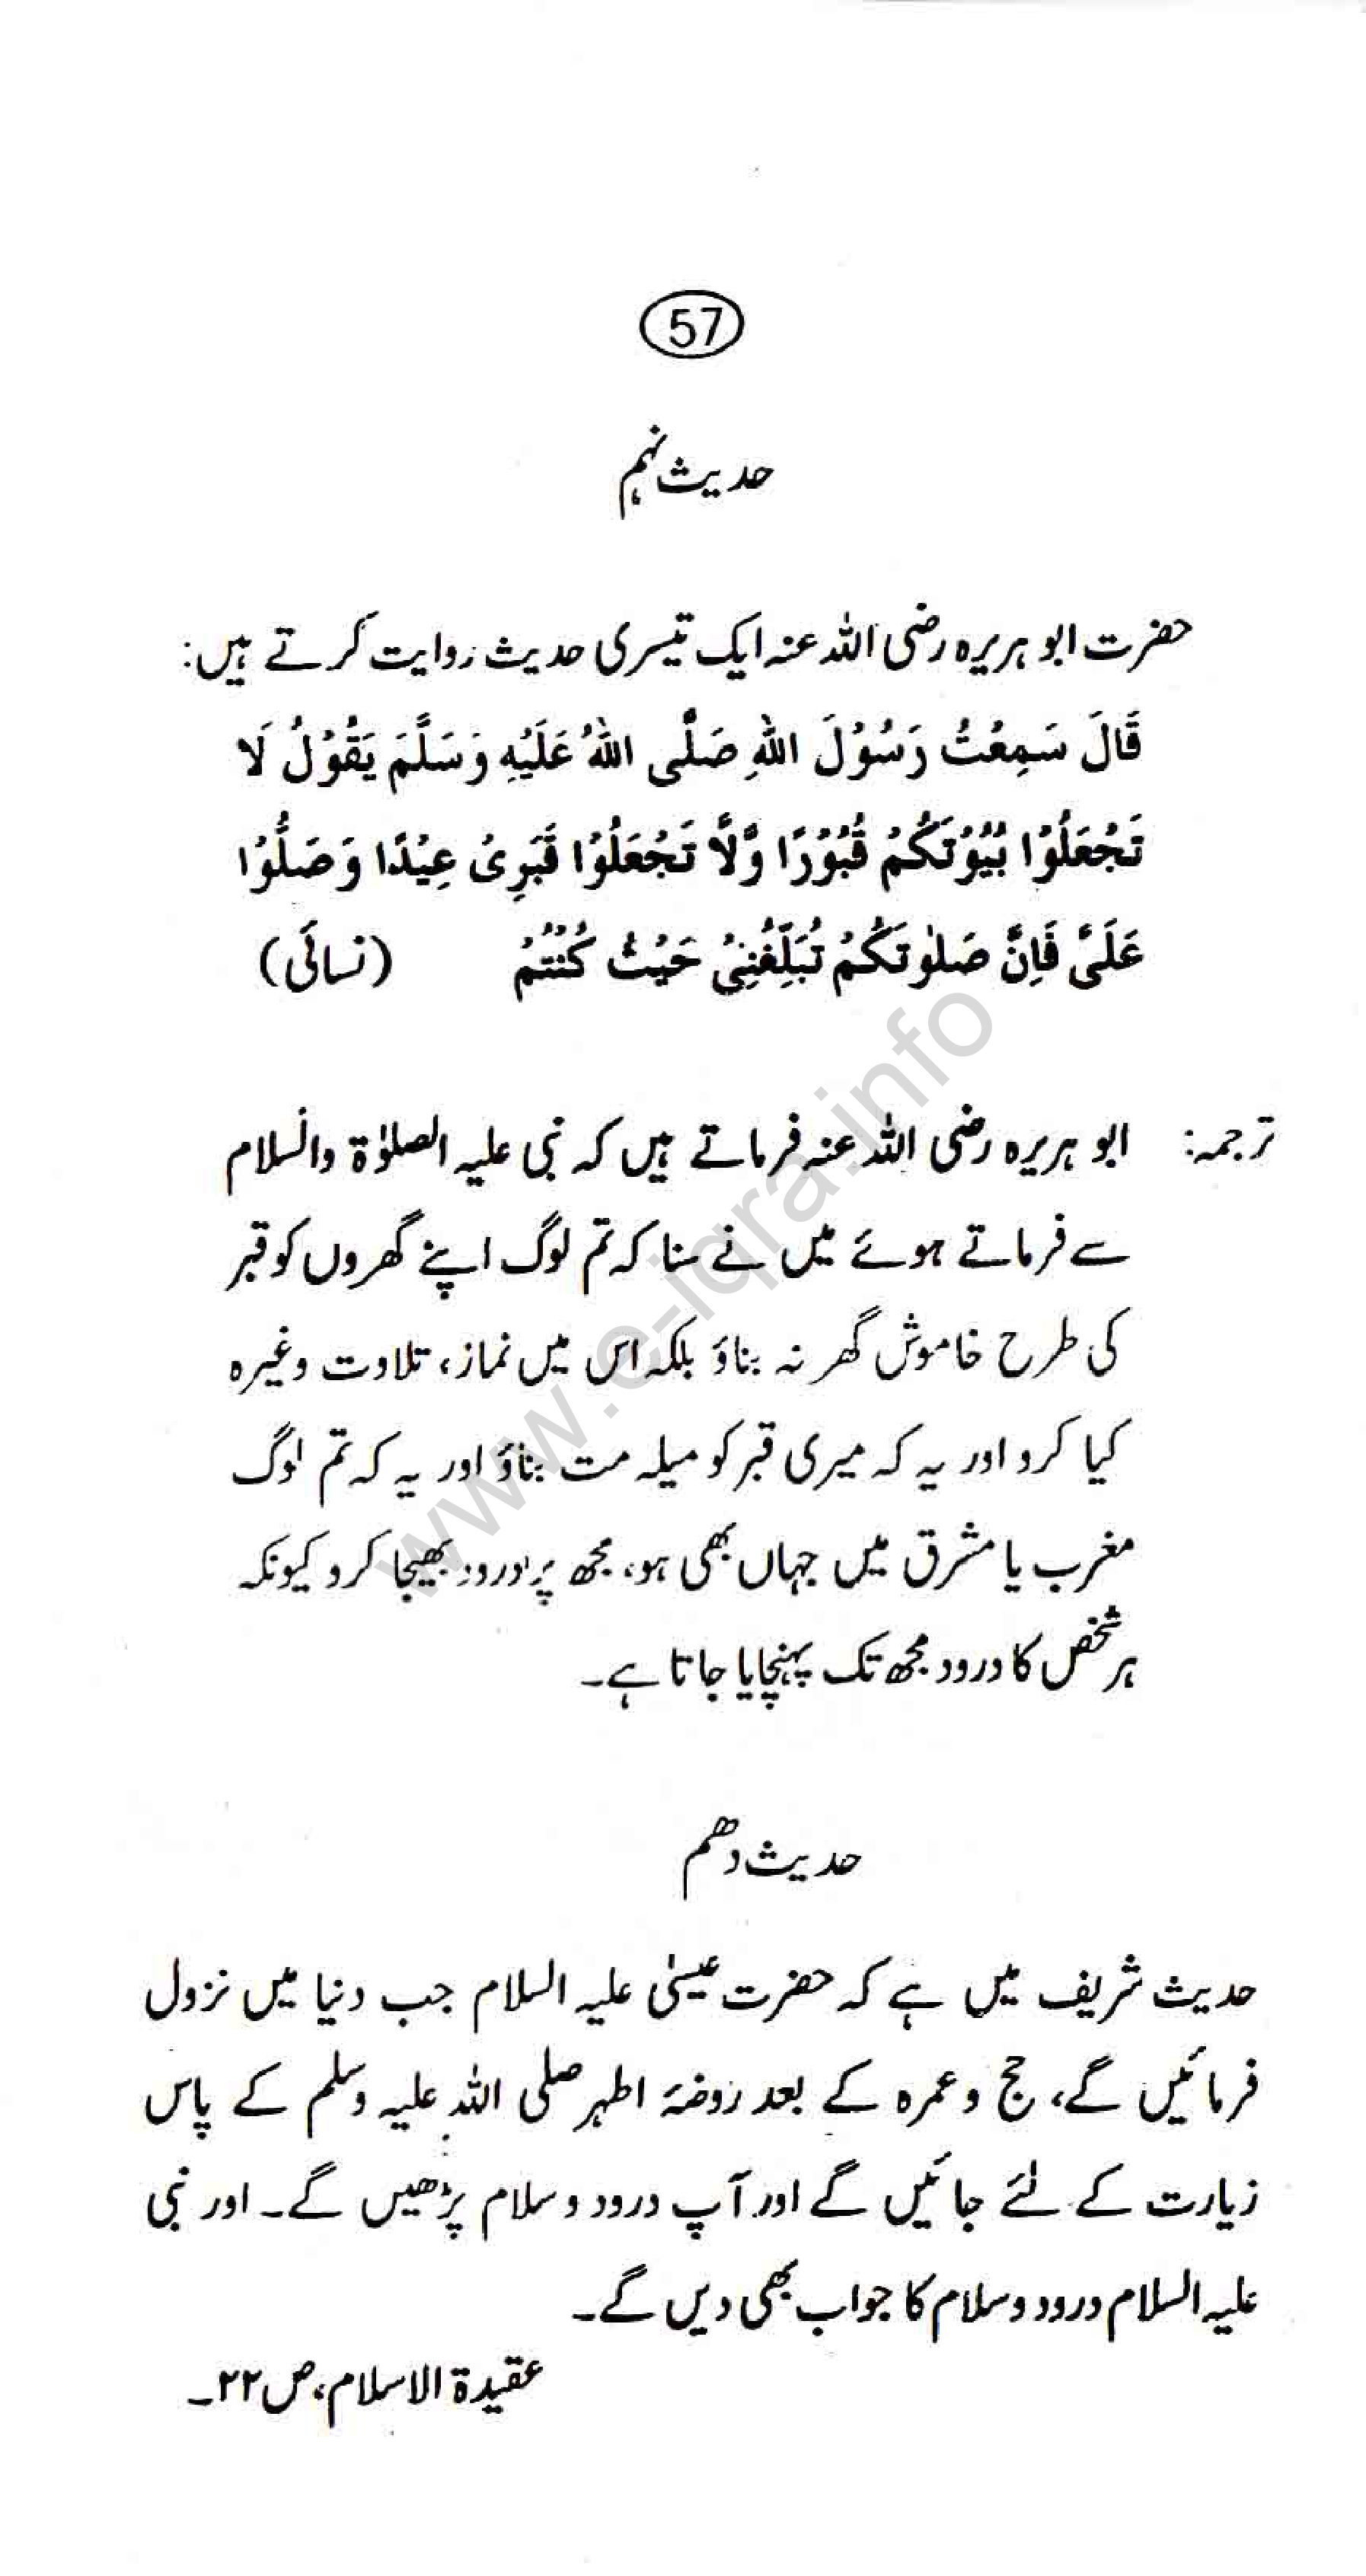 57
حدیث نہم
حضرت ابو ہریرہ رضی اللہ عنہ ایک تیسری حدیث روایت کرتے ہیں:
قَالَ سَمِعْتُ رَسُوْلَ اللهِ صَلَّى اللهُ عَلَيْهِ وَسَلَّمَ يَقُوْلُ لَا
تَجْعَلُوْا بُيُوْتَكُمْ قُبُوْرًا وَّلَا تَجْعَلُوْا قَبَرِىْ عِيْدًا وَصَلُّوْا
عَلَىَّ فَاِنَّ صَلٰوتَكُمْ تُبَلِّغُنِىْ حَيْثُ كُنْتُمْ (نسائی)
ترجمہ: ابو ہریرہ رضی اللہ عنہ فرماتے ہیں کہ نبی علیہ الصلوٰۃ والسلام
سے فرماتے ہوئے میں نے سنا کہ تم لوگ اپنے گھروں کو قبر
کی طرح خاموش گھر نہ بناؤ بلکہ اس میں نماز، تلاوت وغیرہ
کیا کرو اور یہ کہ میری قبر کو میلہ مت بناؤ اور یہ کہ تم لوگ
مغرب یا مشرق میں جہاں بھی ہو، مجھ پر درود بھیجا کرو کیونکہ
ہر شخص کا درود مجھ تک پہنچایا جاتا ہے۔
حدیث دھم
حدیث شریف میں ہے کہ حضرت عیسیٰ علیہ السلام جب دنیا میں نزول
فرمائیں گے، حج و عمرہ کے بعد روضۂ اطہر صلی اللہ علیہ وسلم کے پاس
زیارت کے لئے جائیں گے اور آپ درود و سلام پڑھیں گے۔ اور نبی
علیہ السلام درود و سلام کا جواب بھی دیں گے۔
عقیدۃ الاسلام، ص ۲۲۔
www.e-iqra.info